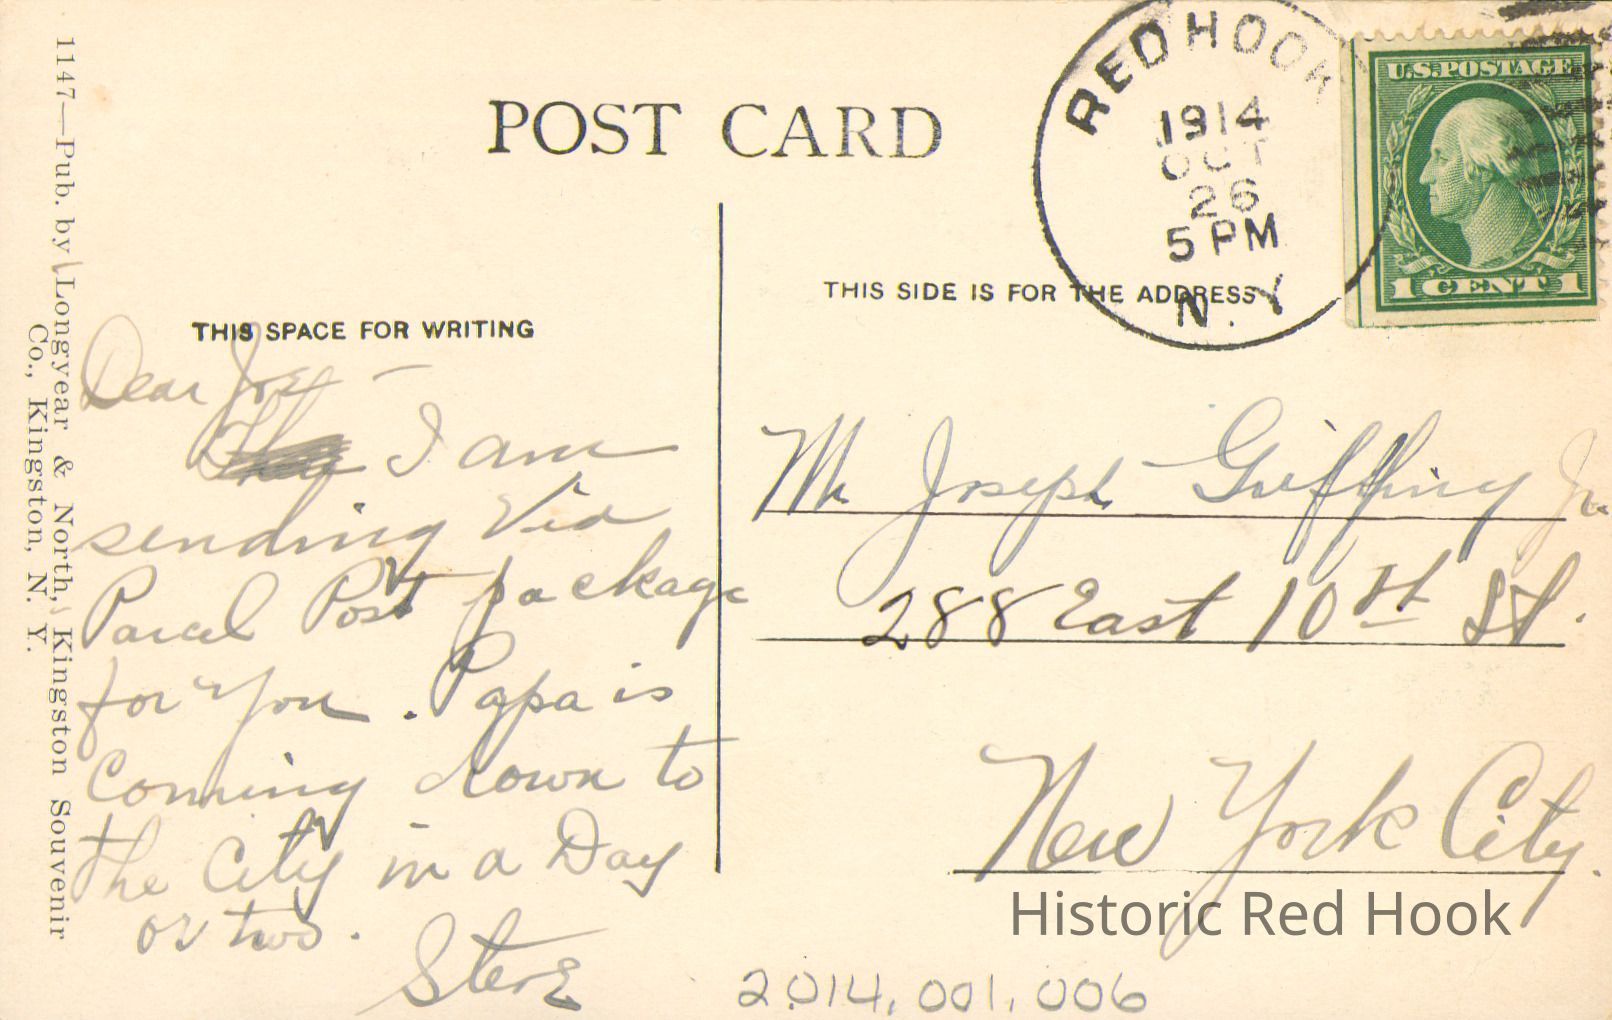 POST CARD
RED HOOK
1914
OCT
26
5 PM
N.Y.
U.S. POSTAGE
1 CENT 1
THIS SPACE FOR WRITING
THIS SIDE IS FOR THE ADDRESS
Dear Joe —
I am
sending Via
Parcel Post package
for you. Papa is
Coming down to
the City in a Day
or two.
Steve
Mr Joseph Griffing Jr.
288 East 10th St.
New York City.
1147—Pub. by Longyear & North, Kingston Souvenir
Co., Kingston, N. Y.
Historic Red Hook
2014.001.006